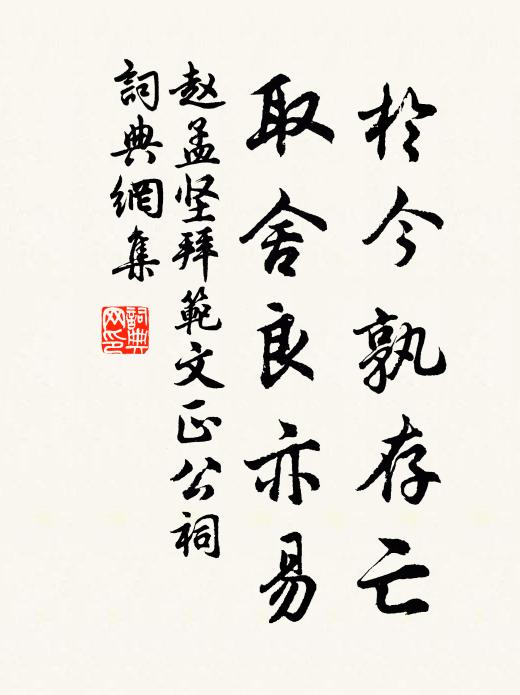 於今孰存亡
取舍良亦易
赵孟坚拜範文正公祠
詞典網集
詞典网印